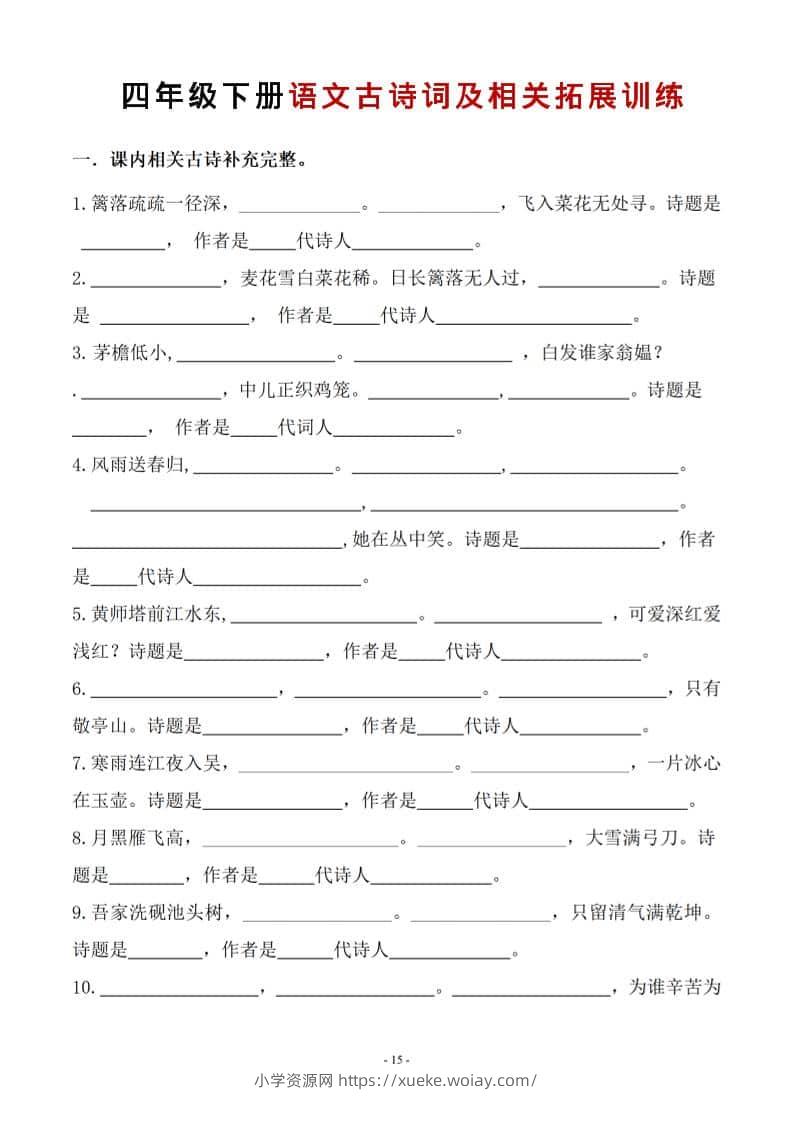 四年级下册语文古诗词及相关拓展训练
一．课内相关古诗补充完整。
1.篱落疏疏一径深，_____________。_____________，飞入菜花无处寻。诗题是
_________， 作者是_____代诗人_____________。
2.______________，麦花雪白菜花稀。日长篱落无人过，_____________。诗题
是 ________________， 作者是_____代诗人_____________________。
3.茅檐低小,_________________。_________________ ，白发谁家翁媪？
.______________，中儿正织鸡笼。______________,_____________。诗题是
________， 作者是_____代词人_____________。
4.风雨送春归,_______________。________________,__________________。
_____________________________,______________________________。
_____________________________,她在丛中笑。诗题是_______________，作者
是_____代诗人__________________。
5.黄师塔前江水东,____________________。__________________ ，可爱深红爱
浅红？诗题是_______________，作者是_____代诗人_______________。
6.____________________，____________________。__________________，只有
敬亭山。诗题是_______________，作者是_____代诗人_____________。
7.寒雨连江夜入吴，_______________________。_________________，一片冰心
在玉壶。诗题是_______________，作者是______代诗人_________________。
8.月黑雁飞高，_____________________。________________，大雪满弓刀。诗
题是________，作者是______代诗人_____________。
9.吾家洗砚池头树，________________。_______________，只留清气满乾坤。
诗题是________，作者是______代诗人_____________。
10._________________，_________________。_________________，为谁辛苦为
- 15 -
小学资源网 https://xueke.woiay.com/